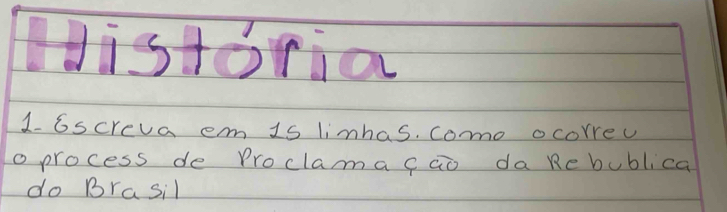 História
1- Escreva em 15 linhas. Como ocorreu
o process de Proclamação da Rebublica
do Brasil